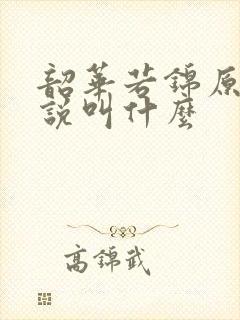 韶華若錦原
說叫什麼
高錦武